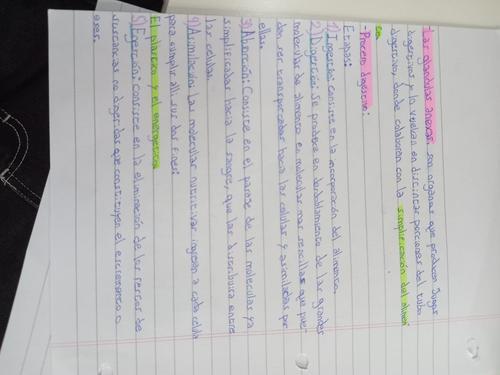 *Las glándulas anexas, son órganos que producen jugos
digestivos y la vuelcan en distintas porciones del tubo
digestivo, donde colaboran con la simplificación del alimen
to.
- Proceso digestivo:
Etapas:
1) Ingestión: consiste en la incorporación del alimento.
2) Digestión: se produce en desdoblamiento de las grandes
moleculas de alimento en moleculas mas sencillas que pue-
den ser transportadas hacia las celulas y asimiladas por
ellas.
3) Absorción: Consiste en el pasaje de las moleculas ya
simplificadas hacia la sangre, que las distribuira entre
las celulas.
4) Asimilación: las moleculas nutritivas ingresan a cada celula
para cumplir allí sus dos fines:
El plástico y el energetico
5) Egestión: consiste en la eliminación de los restos de
sustancias no digeridas que constituyen el excremento o
eses.